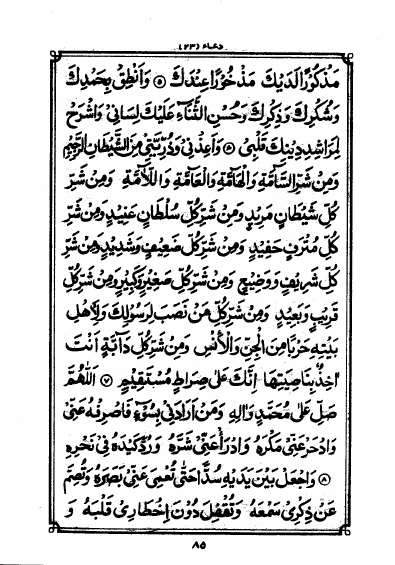 دعاء (۲۳)
مَذْكُورًا لَدَيْكَ مَذْخُورًا عِنْدَكَ ۝۵ وَاَنْطِقْ بِحَمْدِكَ
وَشُكْرِكَ وَذِكْرِكَ وَحُسْنِ الثَّنَاءِ عَلَيْكَ لِسَانِيْ وَاشْرَحْ
لِمَرَاشِدِ دِيْنِكَ قَلْبِيْ ۝۶ وَاَعِذْنِيْ وَذُرِّيَّتِيْ مِنَ الشَّيْطَانِ الرَّجِيْمِ
وَمِنْ شَرِّ السَّامَّةِ وَالْهَامَّةِ وَالْعَامَّةِ وَاللَّامَّةِ وَمِنْ شَرِّ
كُلِّ شَيْطَانٍ مَرِيْدٍ وَمِنْ شَرِّ كُلِّ سُلْطَانٍ عَنِيْدٍ وَمِنْ شَرِّ
كُلِّ مُتْرَفٍ حَفِيْدٍ وَمِنْ شَرِّ كُلِّ ضَعِيْفٍ وَشَدِيْدٍ وَمِنْ شَرِّ
كُلِّ شَرِيْفٍ وَوَضِيْعٍ وَمِنْ شَرِّ كُلِّ صَغِيْرٍ وَكَبِيْرٍ وَمِنْ شَرِّ كُلِّ
قَرِيْبٍ وَبَعِيْدٍ وَمِنْ شَرِّ كُلِّ مَنْ نَصَبَ لِرَسُوْلِكَ وَلِاَهْلِ
بَيْتِهِ حَرْبًا مِنَ الْجِنِّ وَالْاِنْسِ وَمِنْ شَرِّ كُلِّ دَآبَّةٍ اَنْتَ
اٰخِذٌ بِنَاصِيَتِهَا اِنَّكَ عَلٰى صِرَاطٍ مُسْتَقِيْمٍ ۝۷ اَللّٰهُمَّ
صَلِّ عَلٰى مُحَمَّدٍ وَاٰلِهِ وَمَنْ اَرَادَنِيْ بِسُوْٓءٍ فَاصْرِفْهُ عَنِّيْ
وَادْحَرْ عَنِّيْ مَكْرَهُ وَادْرَاْ عَنِّيْ شَرَّهُ وَرُدَّ كَيْدَهُ فِيْ نَحْرِهِ
۝۸ وَاجْعَلْ بَيْنَ يَدَيْهِ سُدًّا حَتّٰى تُعْمِيَ عَنِّيْ بَصَرَهُ وَتُصِمَّ
عَنْ ذِكْرِيْ سَمْعَهُ وَتُقْفِلَ دُوْنَ اِخْطَارِيْ قَلْبَهُ وَ
۸۵